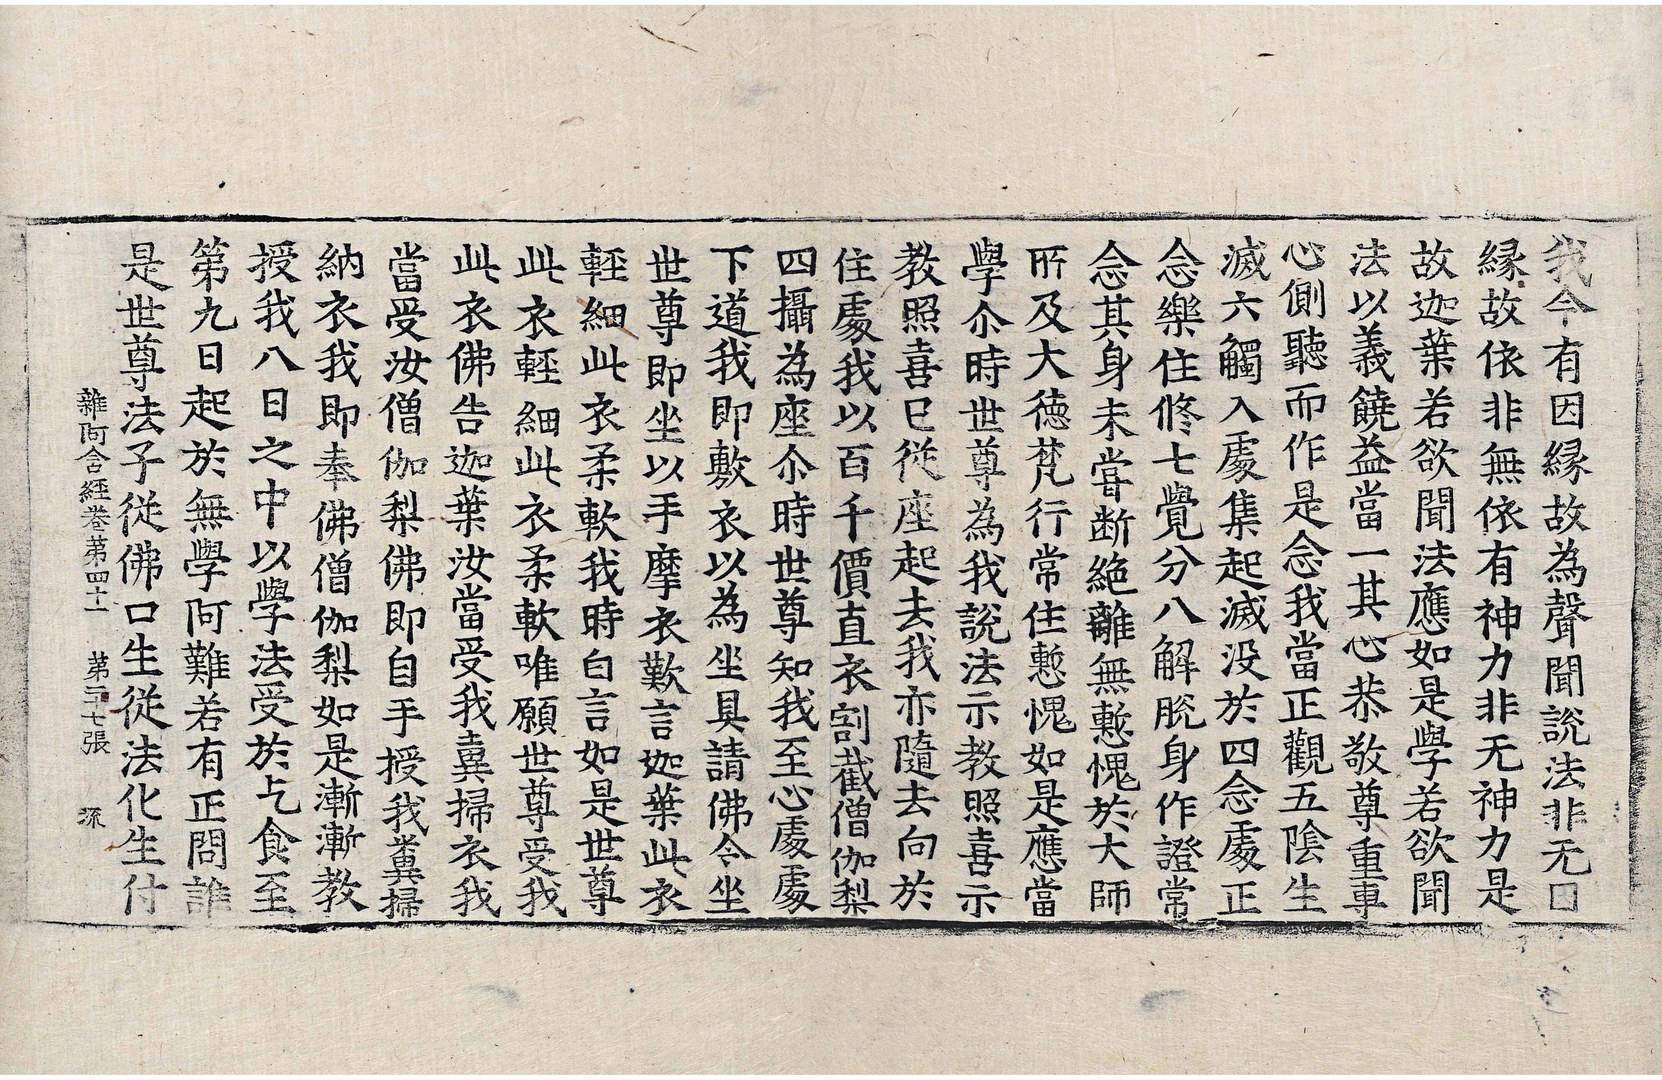 我今有因縁故為聲聞說法非无因
縁故依非無依有神力非无神力是
故迦葉若欲聞法應如是學若欲聞
法以義饒益當一其心恭敬尊重專
心側聽而作是念我當正觀五陰生
滅六觸入處集起滅没於四念處正
念樂住修七覺分八解脫身作證常
念其身未甞断絶離無慙愧於大師
所及大德梵行常住慙愧如是應當
學尒時世尊為我說法示教照喜示
教照喜已從座起去我亦隨去向於
住處我以百千價直衣割截僧伽梨
四攝為座尒時世尊知我至心處處
下道我即敷衣以為坐具請佛令坐
世尊即坐以手摩衣歎言迦葉此衣
輕細此衣柔軟我時白言如是世尊
此衣輕細此衣柔軟唯願世尊受我
此衣佛告迦葉汝當受我糞掃衣我
當受汝僧伽梨佛即自手授我糞掃
納衣我即奉佛僧伽梨如是漸漸教
授我八日之中以學法受於乞食至
第九日起於無學阿難若有正問誰
是世尊法子從佛口生從法化生付
雜阿含經卷第四十一 第二十七張 流